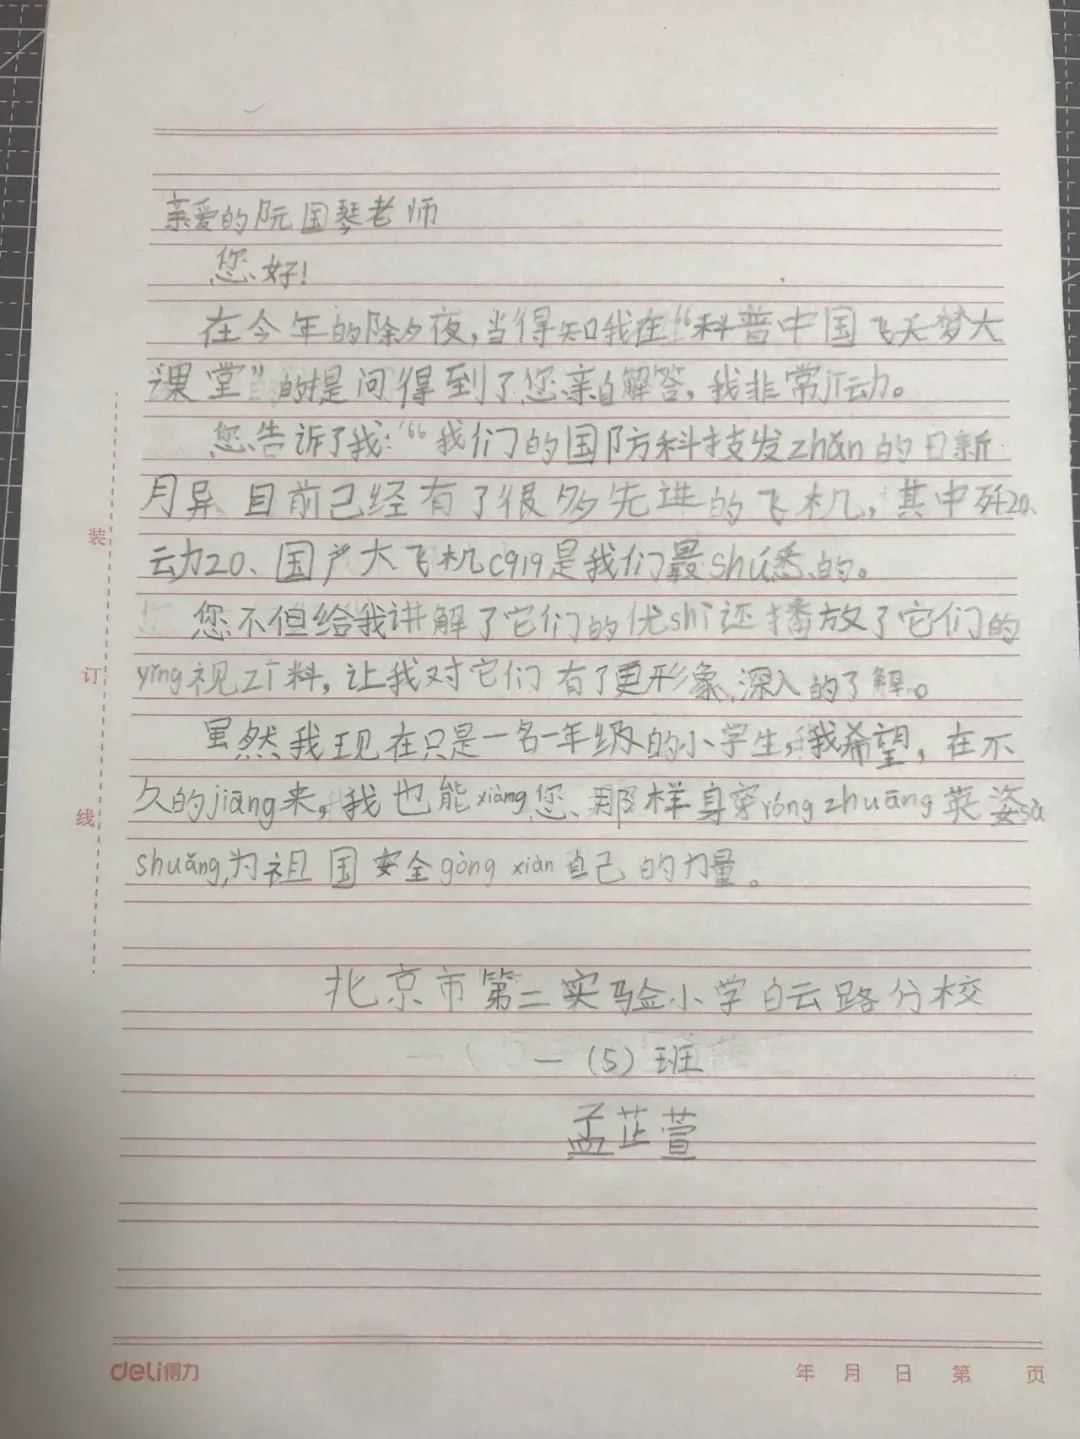 亲爱的阮国琴老师
您好!
在今年的除夕夜,当得知我在“科普中国飞天梦大
课堂”的提问得到了您亲自解答,我非常jī动。
您告诉了我:““我们的国防科技发zhǎn的日新
月异、目前已经有了很多先进的飞机,其中歼20、
运力20、国产大飞机C919是我们最shú悉的。
您不但给我讲解了它们的优shì还播放了它们的
yǐng视zī料,让我对它们有了更形象、深入的了解。
虽然我现在只是一名一年级的小学生,我希望,在不
久的jiāng来,我也能xiàng您那样身穿róng zhuāng英姿sà
shuǎng,为祖国安全gòng xiàn自己的力量。
北京市第二实验小学白云路分校
一(5)班
孟芷萱
装
订
线
deli得力
年 月 日 第 页